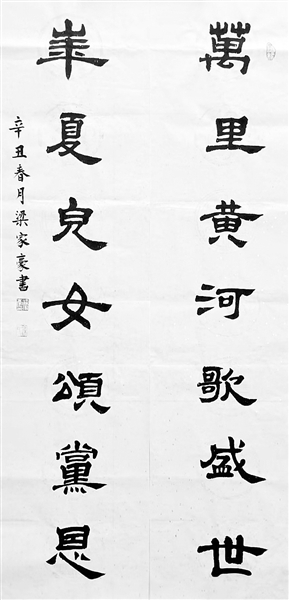 萬里黄河歌盛世
華夏兒女頌黨恩
辛丑春月梁家豪書